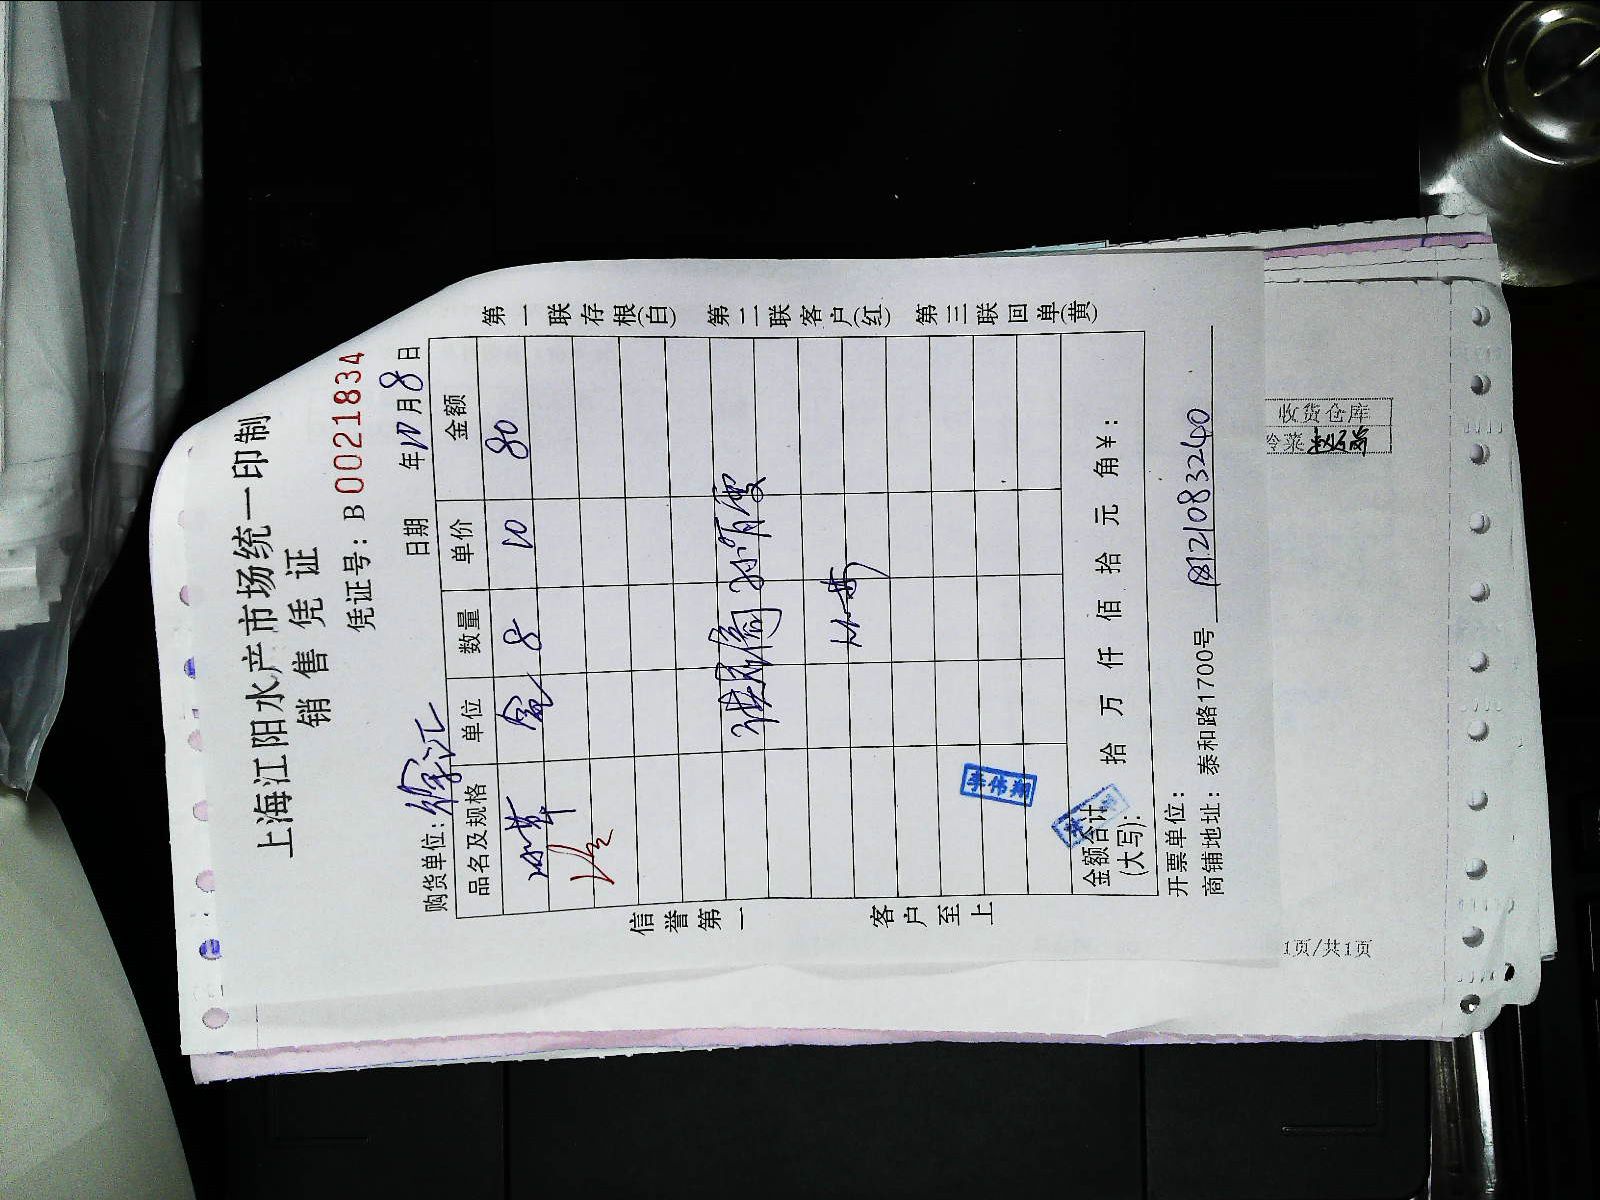 上海江阳水产市场统一印制
销售凭证
凭证号：B 0021834
购货单位：徐汇 日期 年10月8日
品名及规格 单位 数量 单价 金额
冰草 盒 8 10 80
信誉第一
客户至上
第一联存根(白) 第二联客户(红) 第三联回单(黄)
李伟翔
金额合计(大写)： 拾 万 仟 佰 拾 元 角 ¥：
开票单位：
商铺地址：泰和路1700号 18121083240
收货仓库
冷菜
1页/共1页